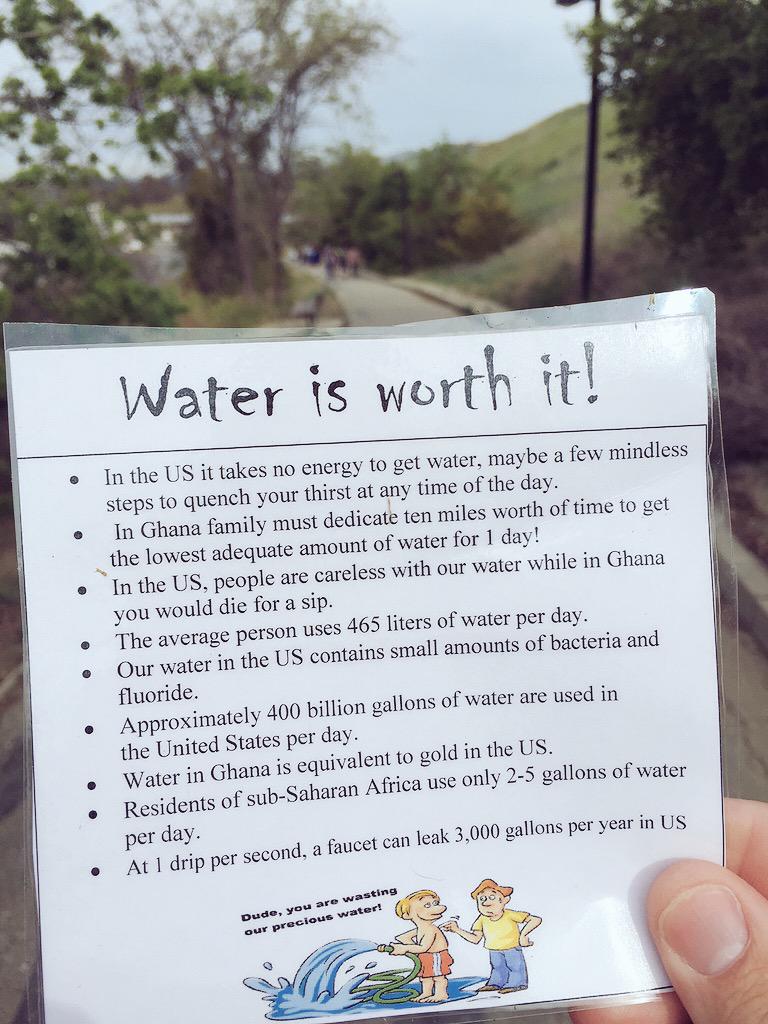 Water is worth it!
• In the US it takes no energy to get water, maybe a few mindless
steps to quench your thirst at any time of the day.
• In Ghana family must dedicate ten miles worth of time to get
the lowest adequate amount of water for 1 day!
• In the US, people are careless with our water while in Ghana
you would die for a sip.
• The average person uses 465 liters of water per day.
• Our water in the US contains small amounts of bacteria and
fluoride.
• Approximately 400 billion gallons of water are used in
the United States per day.
• Water in Ghana is equivalent to gold in the US.
• Residents of sub-Saharan Africa use only 2-5 gallons of water
per day.
• At 1 drip per second, a faucet can leak 3,000 gallons per year in US
Dude, you are wasting
our precious water!